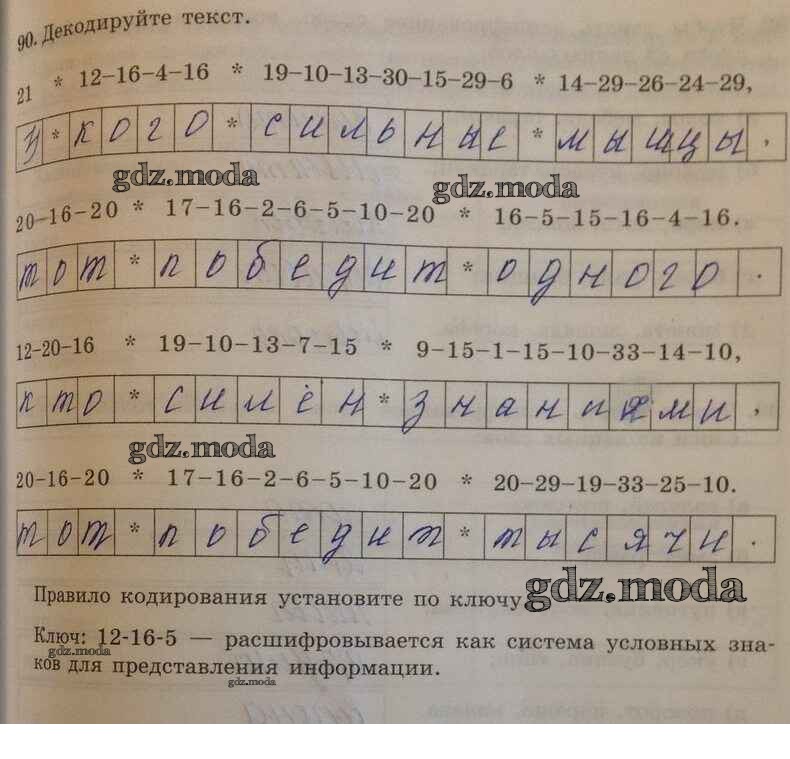 90. Декодируйте текст.
21 * 12–16–4–16 * 19–10–13–30–15–29–6 * 14–29–26–24–29,
у * кого * сильные * мышцы ,
gdz.moda gdz.moda
20–16–20 * 17–16–2–6–5–10–20 * 16–5–15–16–4–16.
тот * победит * одного .
12–20–16 * 19–10–13–7–15 * 9–15–1–15–10–33–14–10,
кто * силён * знаниями ,
gdz.moda
20–16–20 * 17–16–2–6–5–10–20 * 20–29–19–33–25–10.
тот * победит * тысячи .
Правило кодирования установите по ключу gdz.moda
Ключ: 12-16-5 — расшифровывается как система условных зна-
gdz.moda
ков для представления информации.
gdz.moda